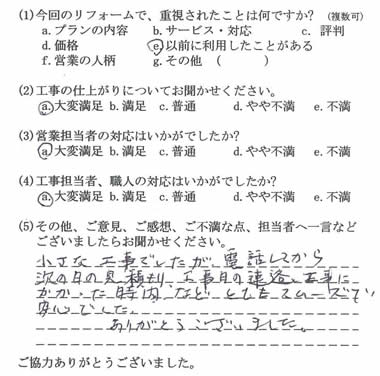 (1) 今回のリフォームで、重視されたことは何ですか? (複数可)
a. プランの内容 b. サービス・対応 c. 評判
d. 価格 e. 以前に利用したことがある
f. 営業の人柄 g. その他 ( )
(2) 工事の仕上がりについてお聞かせください。
a. 大変満足 b. 満足 c. 普通 d. やや不満 e. 不満
(3) 営業担当者の対応はいかがでしたか?
a. 大変満足 b. 満足 c. 普通 d. やや不満 e. 不満
(4) 工事担当者、職人の対応はいかがでしたか?
a. 大変満足 b. 満足 c. 普通 d. やや不満 e. 不満
(5) その他、ご意見、ご感想、ご不満な点、担当者へ一言など
ございましたらお聞かせください。
小さな工事でしたが、電話してから
次の日の見積り、工事日の連絡、工事に
かかった時間など とてもスムーズで
安心でした。
ありがとうございました。
ご協力ありがとうございました。